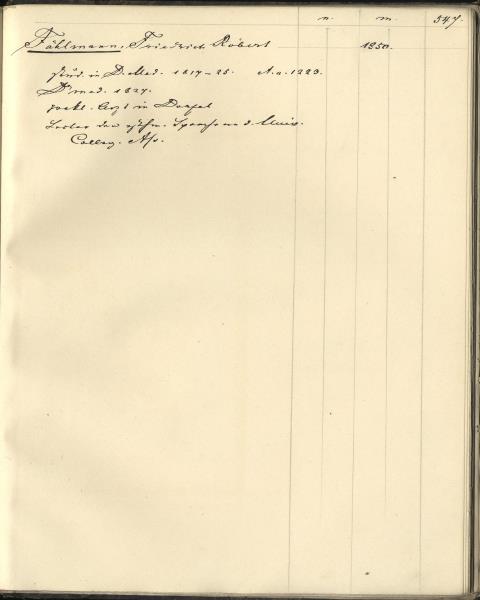 n. m. 547.
Fählmann, Friedrich Robert 1850.
stud. in D. Med. 1817-25. A.a. 1223.
Dr med. 1827.
pract. Arzt in Dorpat
Lector der esthn. Sprache a. d. Univ.
Colleg. Ass.